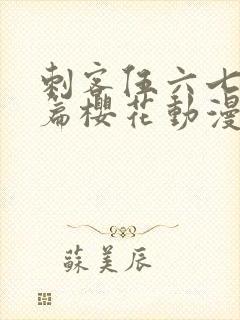 刺客伍六七
篇櫻花動漫
蘇美辰